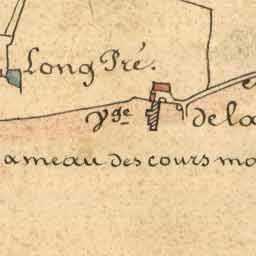 Long Pré.
yge de la
ameau des cours mo